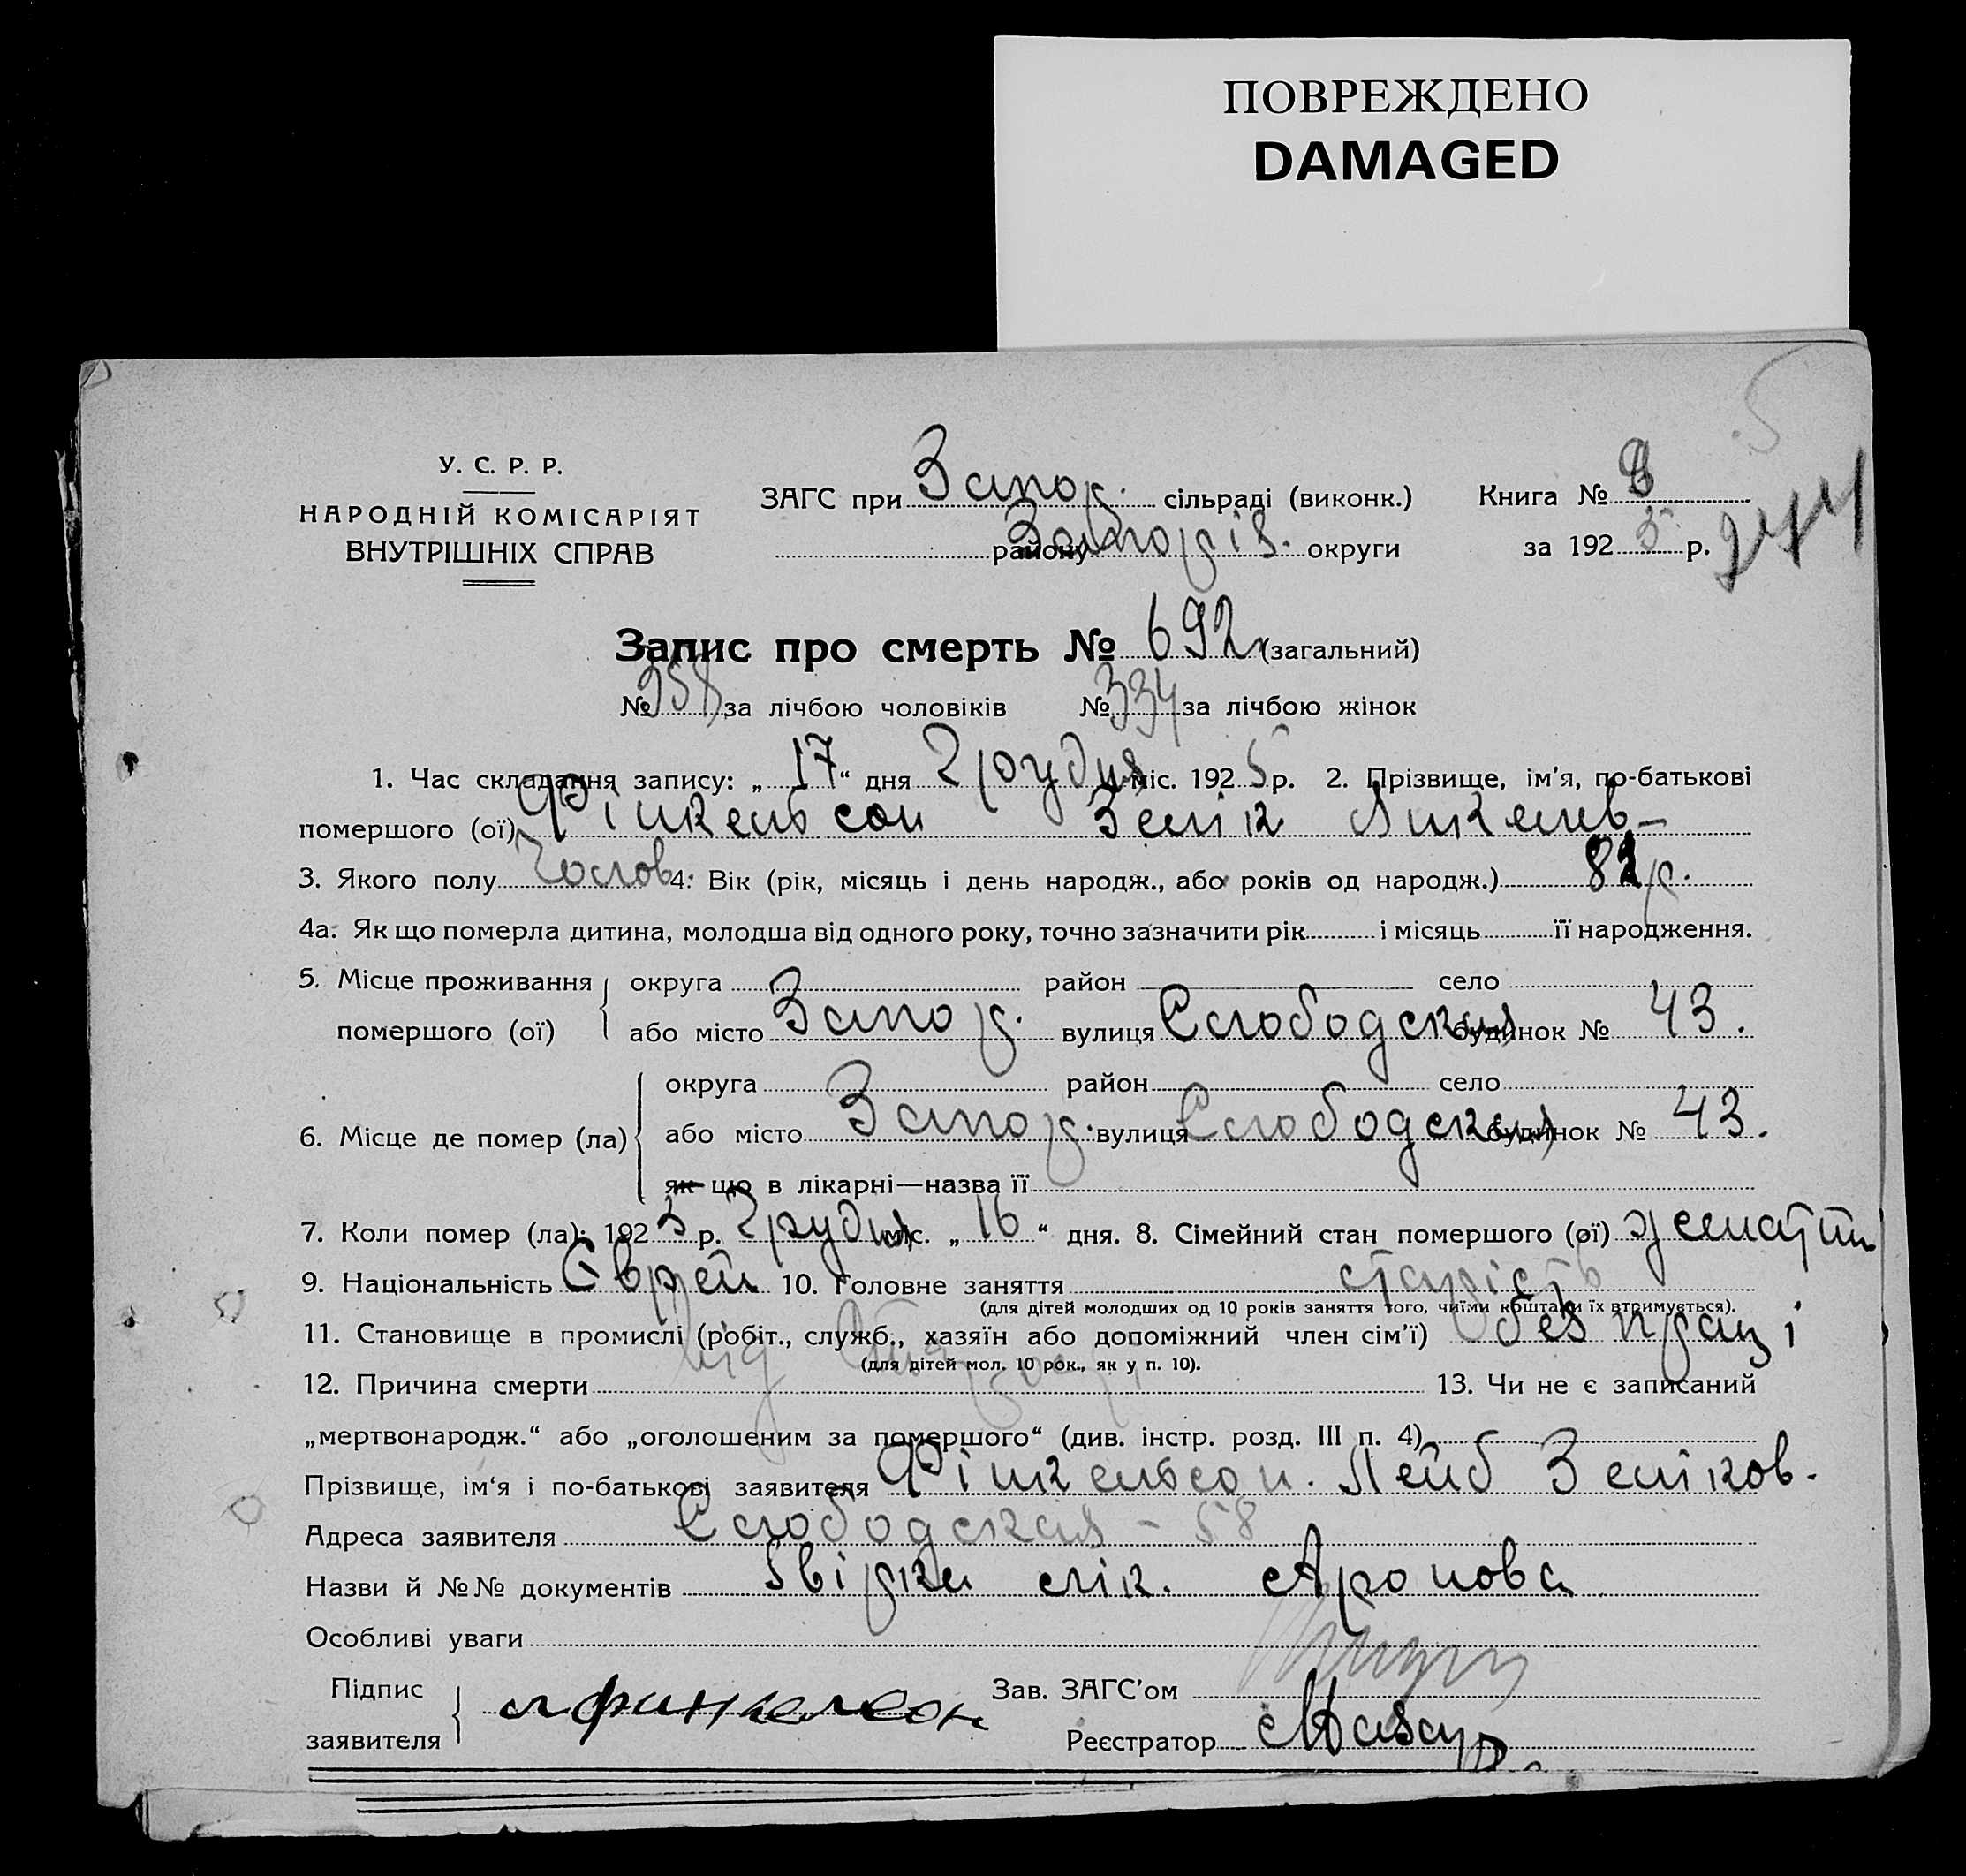 ПОВРЕЖДЕНО
DAMAGED
У. С. Р. Р.
НАРОДНІЙ КОМІСАРІЯТ
ВНУТРІШНІХ СПРАВ
ЗАГС при Запор. сільраді (виконк.)
району Запоріз. округи
Книга № 8
за 1925 р.
Запис про смерть № 692 (загальний)
№ 358 за лічбою чоловіків № 334 за лічбою жінок
1. Час складання запису: „17“ дня Грудня міс. 1925 р. 2. Прізвище, ім’я, по-батькові
помершого (ої) Фінкельсон Зелік
3. Якого полу Чолов. 4. Вік (рік, місяць і день народж., або років од народж.) р.
4а. Як що померла дитина, молодша від одного року, точно зазначити рік і місяць її народження.
5. Місце проживання помершого (ої) округа район село
або місто Запор. вулиця Слободская будинок № 43.
6. Місце де помер (ла) округа район село
або місто Запор. вулиця Слободская будинок № 43.
як що в лікарні—назва її
7. Коли помер (ла): 1925 р. Грудня міс. „16“ дня. 8. Сімейний стан помершого (ої)
9. Національність Єврей 10. Головне заняття старість
(для дітей молодших од 10 років заняття того, чиїми коштами їх втримується).
11. Становище в промислі (робіт., служб., хазяїн або допоміжний член сім’ї) без праці
(для дітей мол. 10 рок., як у п. 10).
12. Причина смерти 13. Чи не є записаний
„мертвонародж.“ або „оголошеним за помершого“ (див. інстр. розд. III п. 4)
Прізвище, ім‘я і по-батькові заявителя Фінкельсон. Лейб Зеліков.
Адреса заявителя Слободская – 58
Назви й №№ документів лік. Аронова
Особливі уваги
Підпис заявителя л финкелсон
Зав. ЗАГС’ом
Реєстратор Мазур